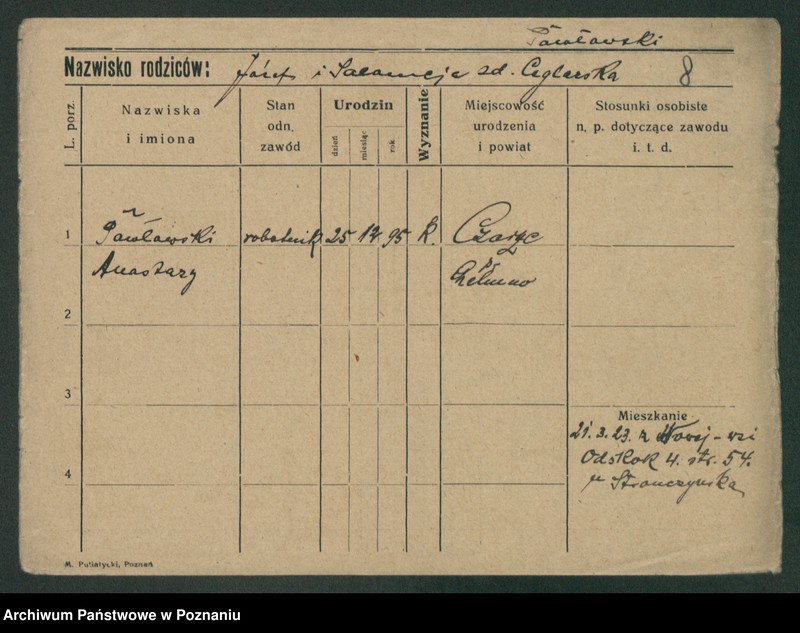 Pawłowski
Nazwisko rodziców: Józef i Salomeja zd. Ceglarska 8
L. porz.
Nazwiska i imiona
Stan odn. zawód
Urodzin
dzień
miesiąc
rok
Wyznanie
Miejscowość urodzenia i powiat
Stosunki osobiste n. p. dotyczące zawodu i. t. d.
1 Pawłowski robotnik 25 12 95 k.
Anastazy
2
3
4
Mieszkanie
21. 3. 23. z Nowej-wsi
Odskok 4. str. 54.
M. Putiatycki, Poznań
Archiwum Państwowe w Poznaniu